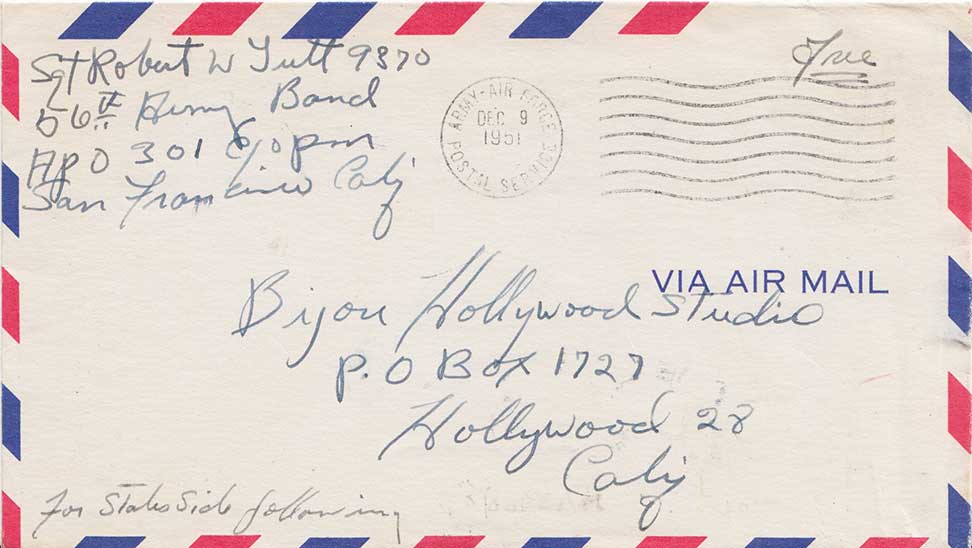 Sgt Robert W Tutt 9370
56th Army Band
APO 301 c/o pm
San Francisco Calif
Free
ARMY-AIR FORCE
DEC 9
1951
POSTAL SERVICE
VIA AIR MAIL
Bijou Hollywood Studio
P.O Box 1727
Hollywood 28
Calif
For States Side following